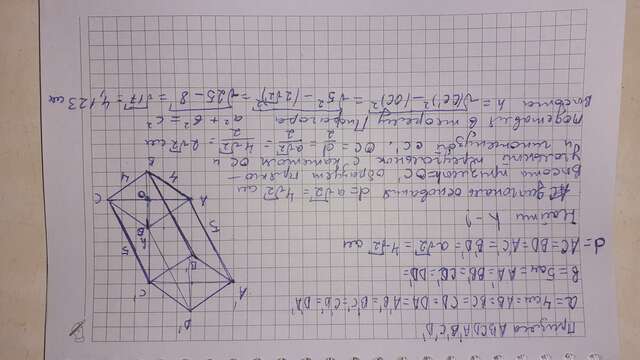 Призма ABCDA'B'C'D'
a = 4см = AB = BC = CD = DA = A'B' = B'C' = C'D' = D'A'
B = 5см = AA' = BB' = CC' = DD' =
d = AC = BD = A'C' = B'D' = a√2 = 4√2 см
Найти h - ?
AC диагональ основания d = a√2 = 4√2 см
Высота призмы = OC' образует прямо-
угольный треугольник с катетом OC и
и гипотенузой CC', OC = d/2 = a√2/2 = 4√2/2 = 2√2 см
Подставив в теорему Пифагора a² + b² = c²
Высота h = √(CC')² - (OC)² = √5² - (2√2)² = √25 - 8 = √17 = 4,123 см
D'
A'
C'
B'
5
5
K
B
O
A
C
4
4
B